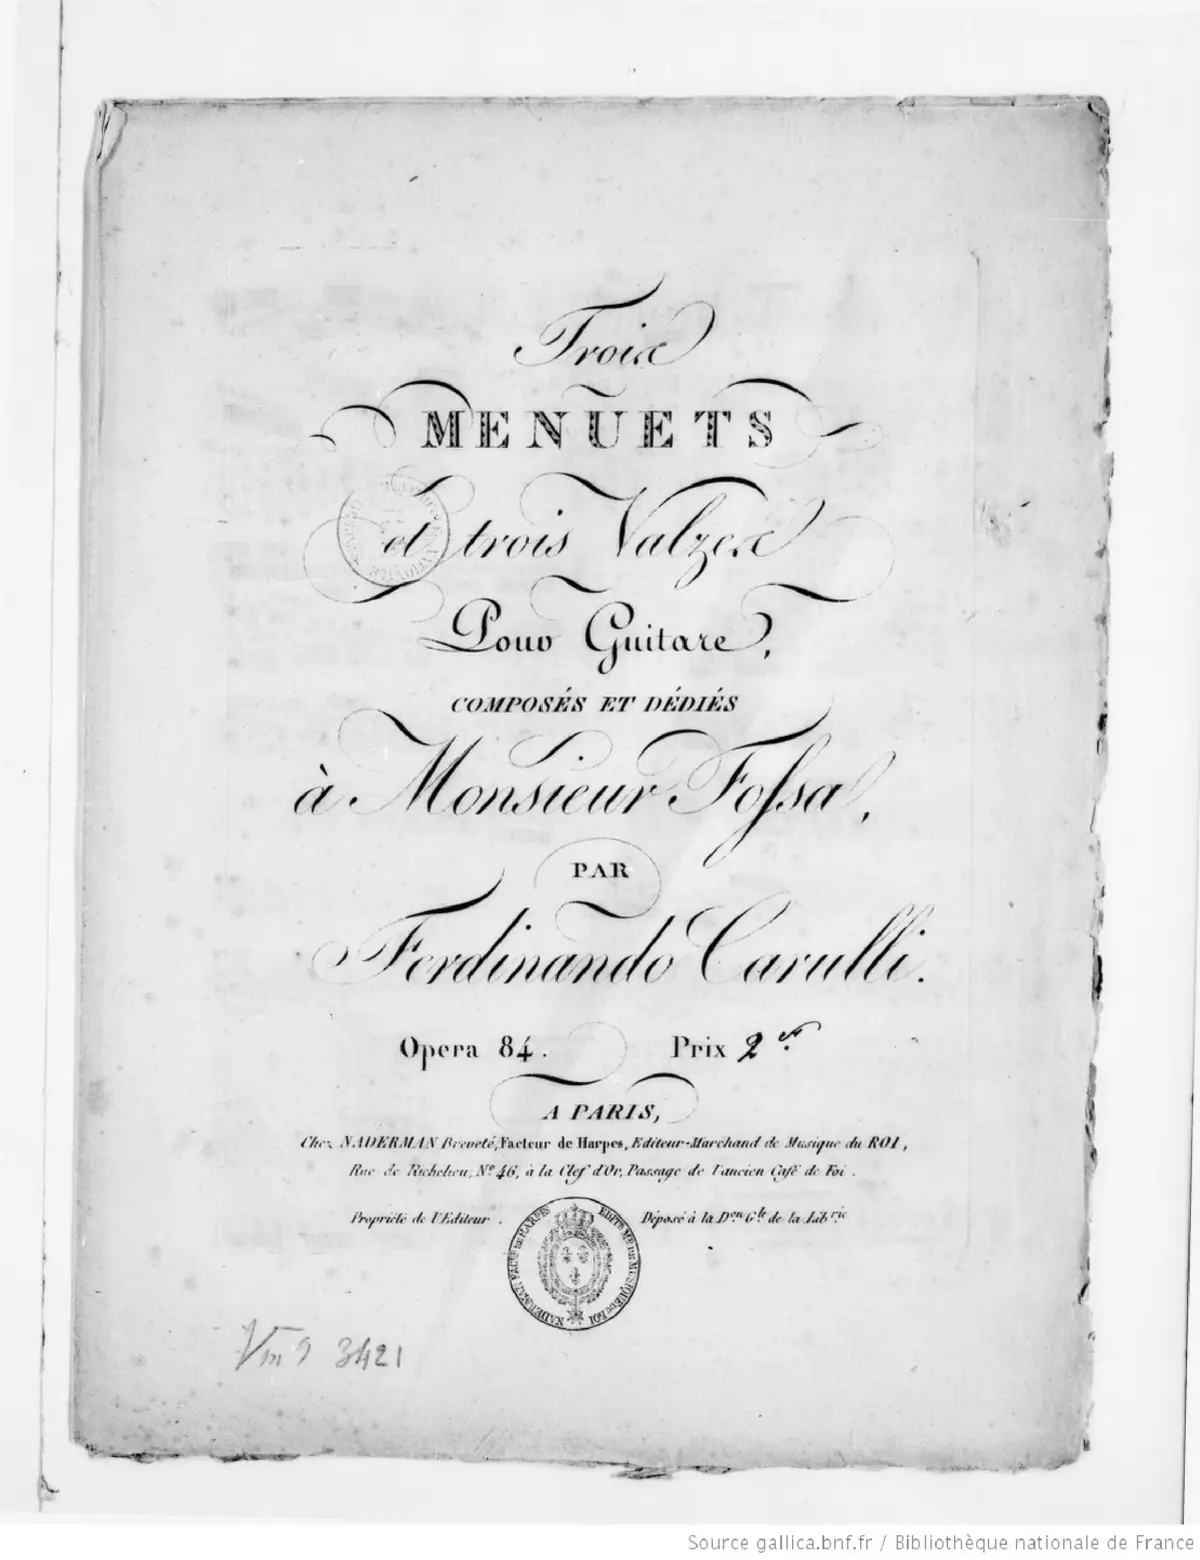 Troix
MENUETS
et trois Valzex
Pour Guitare,
COMPOSÉS ET DÉDIÉS
à Monsieur Fossa,
PAR
Ferdinando Carulli.
Opera 84. Prix 2f.
A PARIS,
Chez NADERMAN Breveté, Facteur de Harpes, Editeur-Marchand de Musique du ROI,
Rue de Richelieu, No 46, à la Clef d'Or, Passage de l'ancien Café de Foi.
Propriété de l'Editeur. Déposé à la Don Gle de la Librie
NADERMAN FACTr DE HARPES EDITr Md DE MUSIQUE du ROI
Vm 9 3421
Source gallica.bnf.fr / Bibliothèque nationale de France